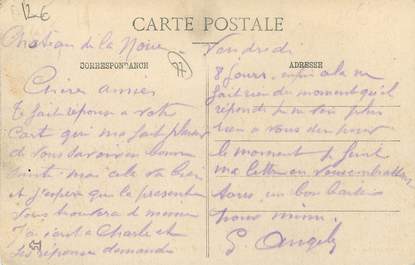 12€
CARTE POSTALE
CORRESPONDANCE
ADRESSE
Château de la
Vendredi
Chère amies
Je fait réponse a votre
Carte qui ma fait plaisir
de vous savoir en bonne
santé mai cela va bien
et j'espère que la presente
vous trouvera de meme
J'ai écrit a Charle et
réponse demande
8 jours enfin cela ne
fait rien du moment qu'il
réponde je ne voit plus
rien a vous dire pour
le moment je finit
ma lettre en vous embrassant
tous un bon baiser
pour mimi
G Angele